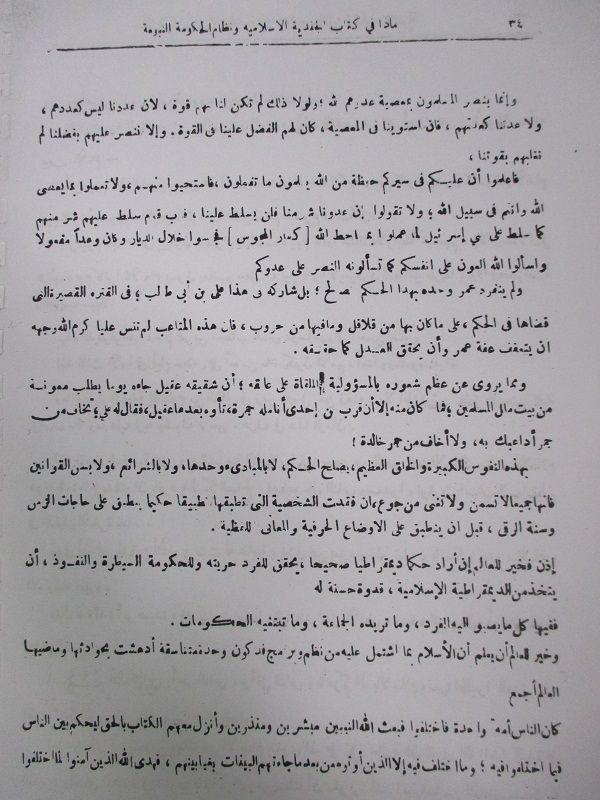 ٣٤ ماذا في كتاب الجندية الاسلاميه ونظام الحكومة النبويه
وإنما ينصر المسلمون بمعصية عدوهم لله ؛ ولولا ذلك لم تكن لنا بهم قوة ، لأن عددنا ليس كعددهم ،
ولا عدتنا كعدتهم ، فان استوينا في المعصية ، كان لهم الفضل علينا في القوة . وإلا ننصر عليهم بفضلنا لم
نغلبهم بقوتنا ،
فاعلموا أن عليكم في سيركم حفظة من الله يعلمون ما تفعلون ، فاستحيوا منهم ، ولا تعملوا بمايعصى
الله وانتم في سبيل الله ؛ ولا تقولوا إن عدونا شر منا فلن يسلط علينا ، فرب قوم سلط عليهم شر منهم
كما سلط على بني إسرائيل لما عملوا بمساخط الله [ كفار المجوس ] فجاسوا خلال الديار وكان وعداً مفعولا
واسألوا الله العون على انفسكم كما تسألونه النصر على عدوكم
ولم ينفرد عمر وحده بهذا الحكم الصالح ؛ بل شاركه في هذا على بن أبي طالب ؛ في الفتره القصيرة التي
قضاها في الحكم ، على ما كان بها من قلاقل ومافيها من حروب ، فان هذه المتاعب لم تنس عليا كرم الله وجهه
ان يتعفف عفة عمر وأن يحقق العدل كما حققه .
ومما يروى عن عظم شعوره بالمسؤولية الملقاة على عاتقه ؛ أن شقيقه عقيل جاءه يوما يطلب معونة
من بيت مال المسلمين ؛ فما كان منه إلا أن قرب من إحدى أنامله جمرة ، تأوه بعدها عقيل ، فقال له على ؛ تخاف من
جمر أداعبك به ، ولا أخاف من جمر خالدة !
بهذه النفوس الكبيرة والخلق العظيم ، يصلح الحكم ، لا بالمبادىء وحدها ، ولا بالشرائع ، ولا بسن القوانين
فانها جميعا لا تسمن ولا تغنى من جوع ، إن فقدت الشخصية التي تطبقها تطبيقا حكيما ينطبق على حاجات الناس
وسنة الرقى ، قبل ان ينطبق على الاوضاع الحرفية والمعانى اللفظية .
إذن فخير للعالم إن أراد حكما ديمقراطيا صحيحا ، يحقق للفرد حريته وللحكومة السيطرة والنفوذ ، أن
يتخذ من الديمقراطية الإسلامية ، قدوة حسنة له
ففيها كل ما يصبو اليه الفرد ، وما تريده الجماعة ، وما تبتغيه الحكومات .
وخير للعالم أن يعلم أن الأسلام بما اشتمل عليه من نظم وبرامج قد كون وحدة متناسقة أدهشت بحوادثها وماضيها
العالم أجمع
كان الناس أمة واحدة فاختلفوا فبعث الله النبيين مبشرين ومنذرين وأنزل معهم الكتاب بالحق ليحكم بين الناس
فيما اختلفوا فيه ؛ وما اختلف فيه إلا الذين أوتوه من بعد ما جاءتهم البينات بغيا بينهم ، فهدى الله الذين آمنوا لما اختلفوا